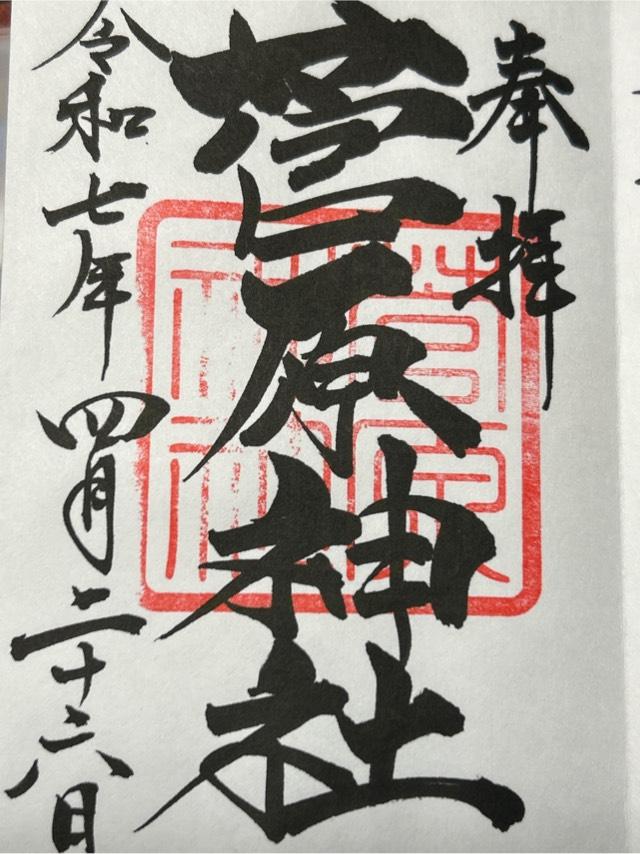 奉拝
菅原神社
令和七年四月二十六日